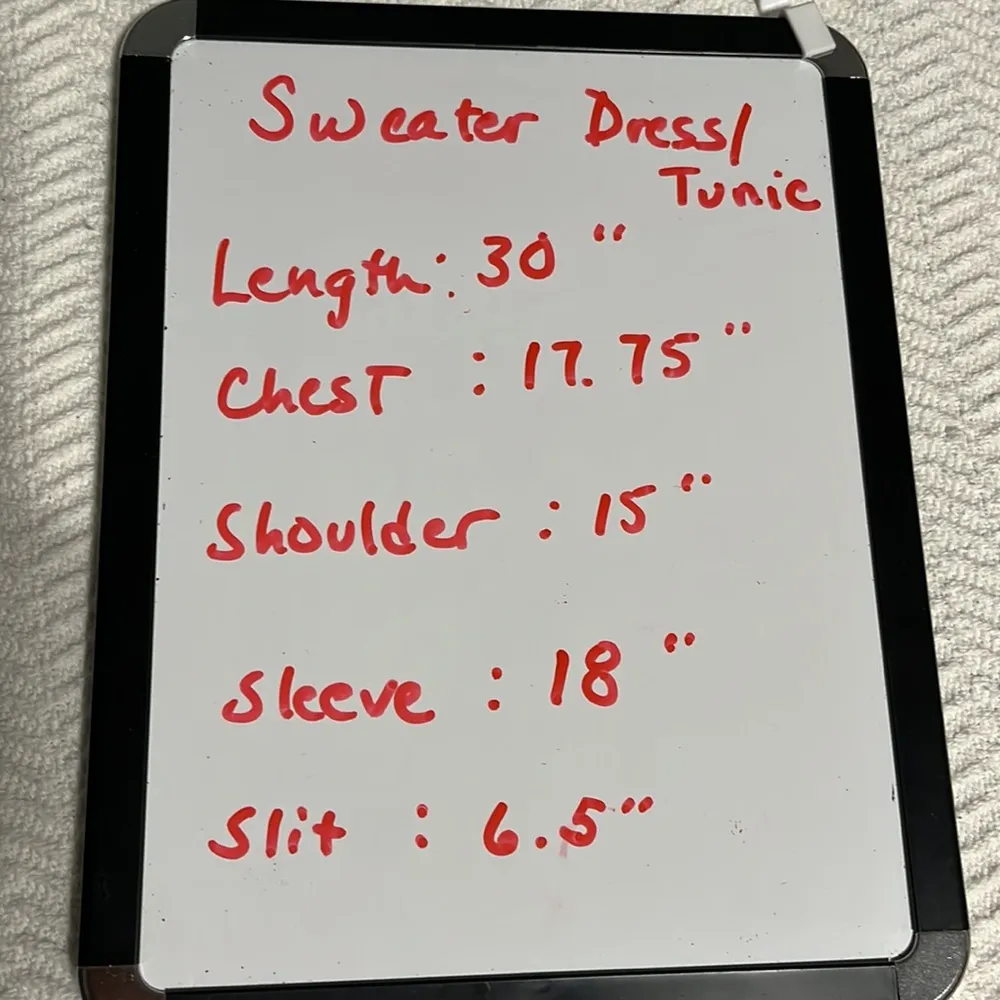 Sweater Dress/
Tunic
Length: 30"
Chest : 17.75"
Shoulder : 15"
Sleeve : 18"
Slit : 6.5"